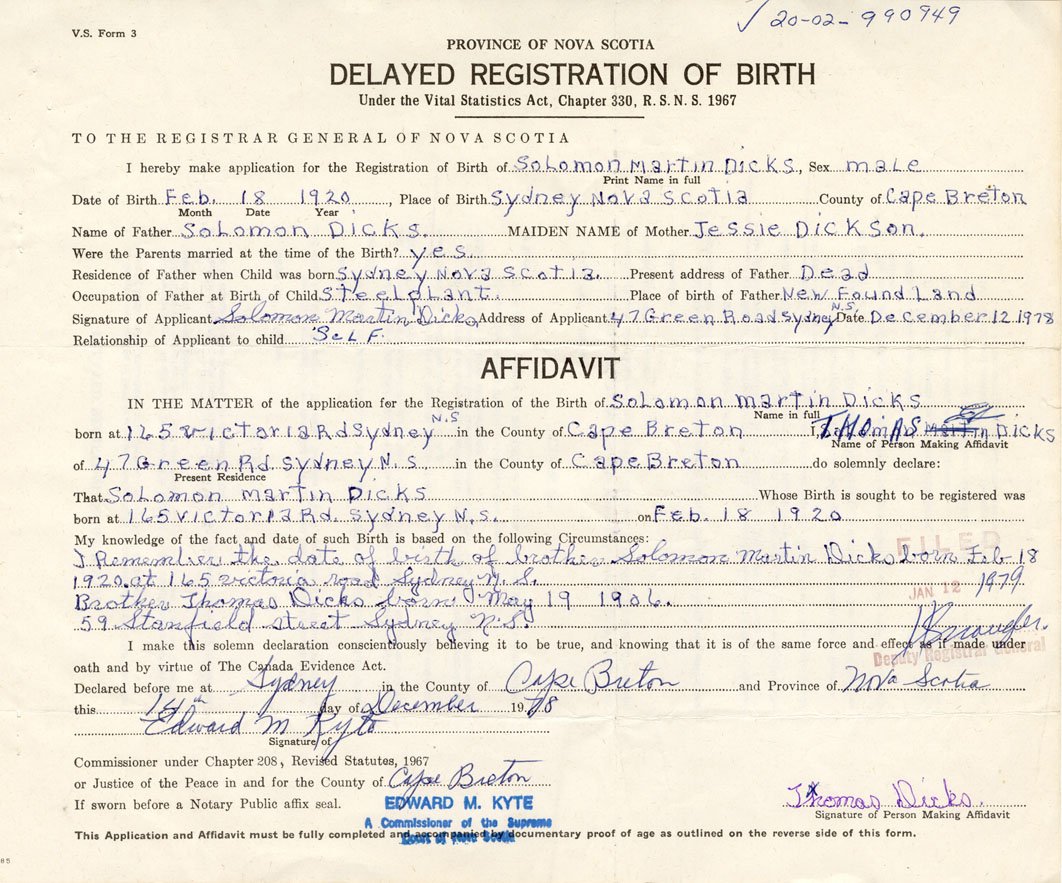 ✓ 20-02-990949
V.S. Form 3
PROVINCE OF NOVA SCOTIA
DELAYED REGISTRATION OF BIRTH
Under the Vital Statistics Act, Chapter 330, R.S.N.S. 1967
TO THE REGISTRAR GENERAL OF NOVA SCOTIA
I hereby make application for the Registration of Birth of Solomon Martin Dicks, Sex male
Print Name in full
Date of Birth Feb. 18 1920, Place of Birth Sydney Nova Scotia County of Cape Breton
Month Date Year
Name of Father Solomon Dicks. MAIDEN NAME of Mother Jessie Dickson.
Were the Parents married at the time of the Birth? yes.
Residence of Father when Child was born Sydney Nova Scotia. Present address of Father Dead
Occupation of Father at Birth of Child Steel Plant. Place of birth of Father New Found Land
Signature of Applicant Solomon Martin Dicks Address of Applicant 47 Green Road Sydney N.S. Date December 12 1978
Relationship of Applicant to child Self.
AFFIDAVIT
IN THE MATTER of the application for the Registration of the Birth of Solomon Martin Dicks
Name in full
born at 165 Victoria Rd Sydney N.S in the County of Cape Breton I, Thomas Martin Dicks
Name of Person Making Affidavit
of 47 Green Rd. Sydney N.S. in the County of Cape Breton do solemnly declare:
Present Residence
That Solomon Martin Dicks Whose Birth is sought to be registered was
born at 165 Victoria Rd. Sydney N.S. on Feb. 18 1920
My knowledge of the fact and date of such Birth is based on the following Circumstances:
FILED
I Remember the date of birth of brother Solomon Martin Dicks born Feb 18
1920. at 165 Victoria road Sydney N.S.
JAN 12 1979
Brother Thomas Dicks born May 19 1906.
59 Stanfield street Sydney N.S.
I make this solemn declaration conscientiously believing it to be true, and knowing that it is of the same force and effect as if made under
Deputy Registrar General
oath and by virtue of The Canada Evidence Act.
Declared before me at Sydney in the County of Cape Breton and Province of Nova Scotia
this 14th day of December 1978
Edward M Kyte
Signature of
Commissioner under Chapter 208, Revised Statutes, 1967
or Justice of the Peace in and for the County of Cape Breton
If sworn before a Notary Public affix seal.
EDWARD M. KYTE
A Commissioner of the Supreme
Court of Nova Scotia
Thomas Dicks.
Signature of Person Making Affidavit
This Application and Affidavit must be fully completed and accompanied by documentary proof of age as outlined on the reverse side of this form.
85